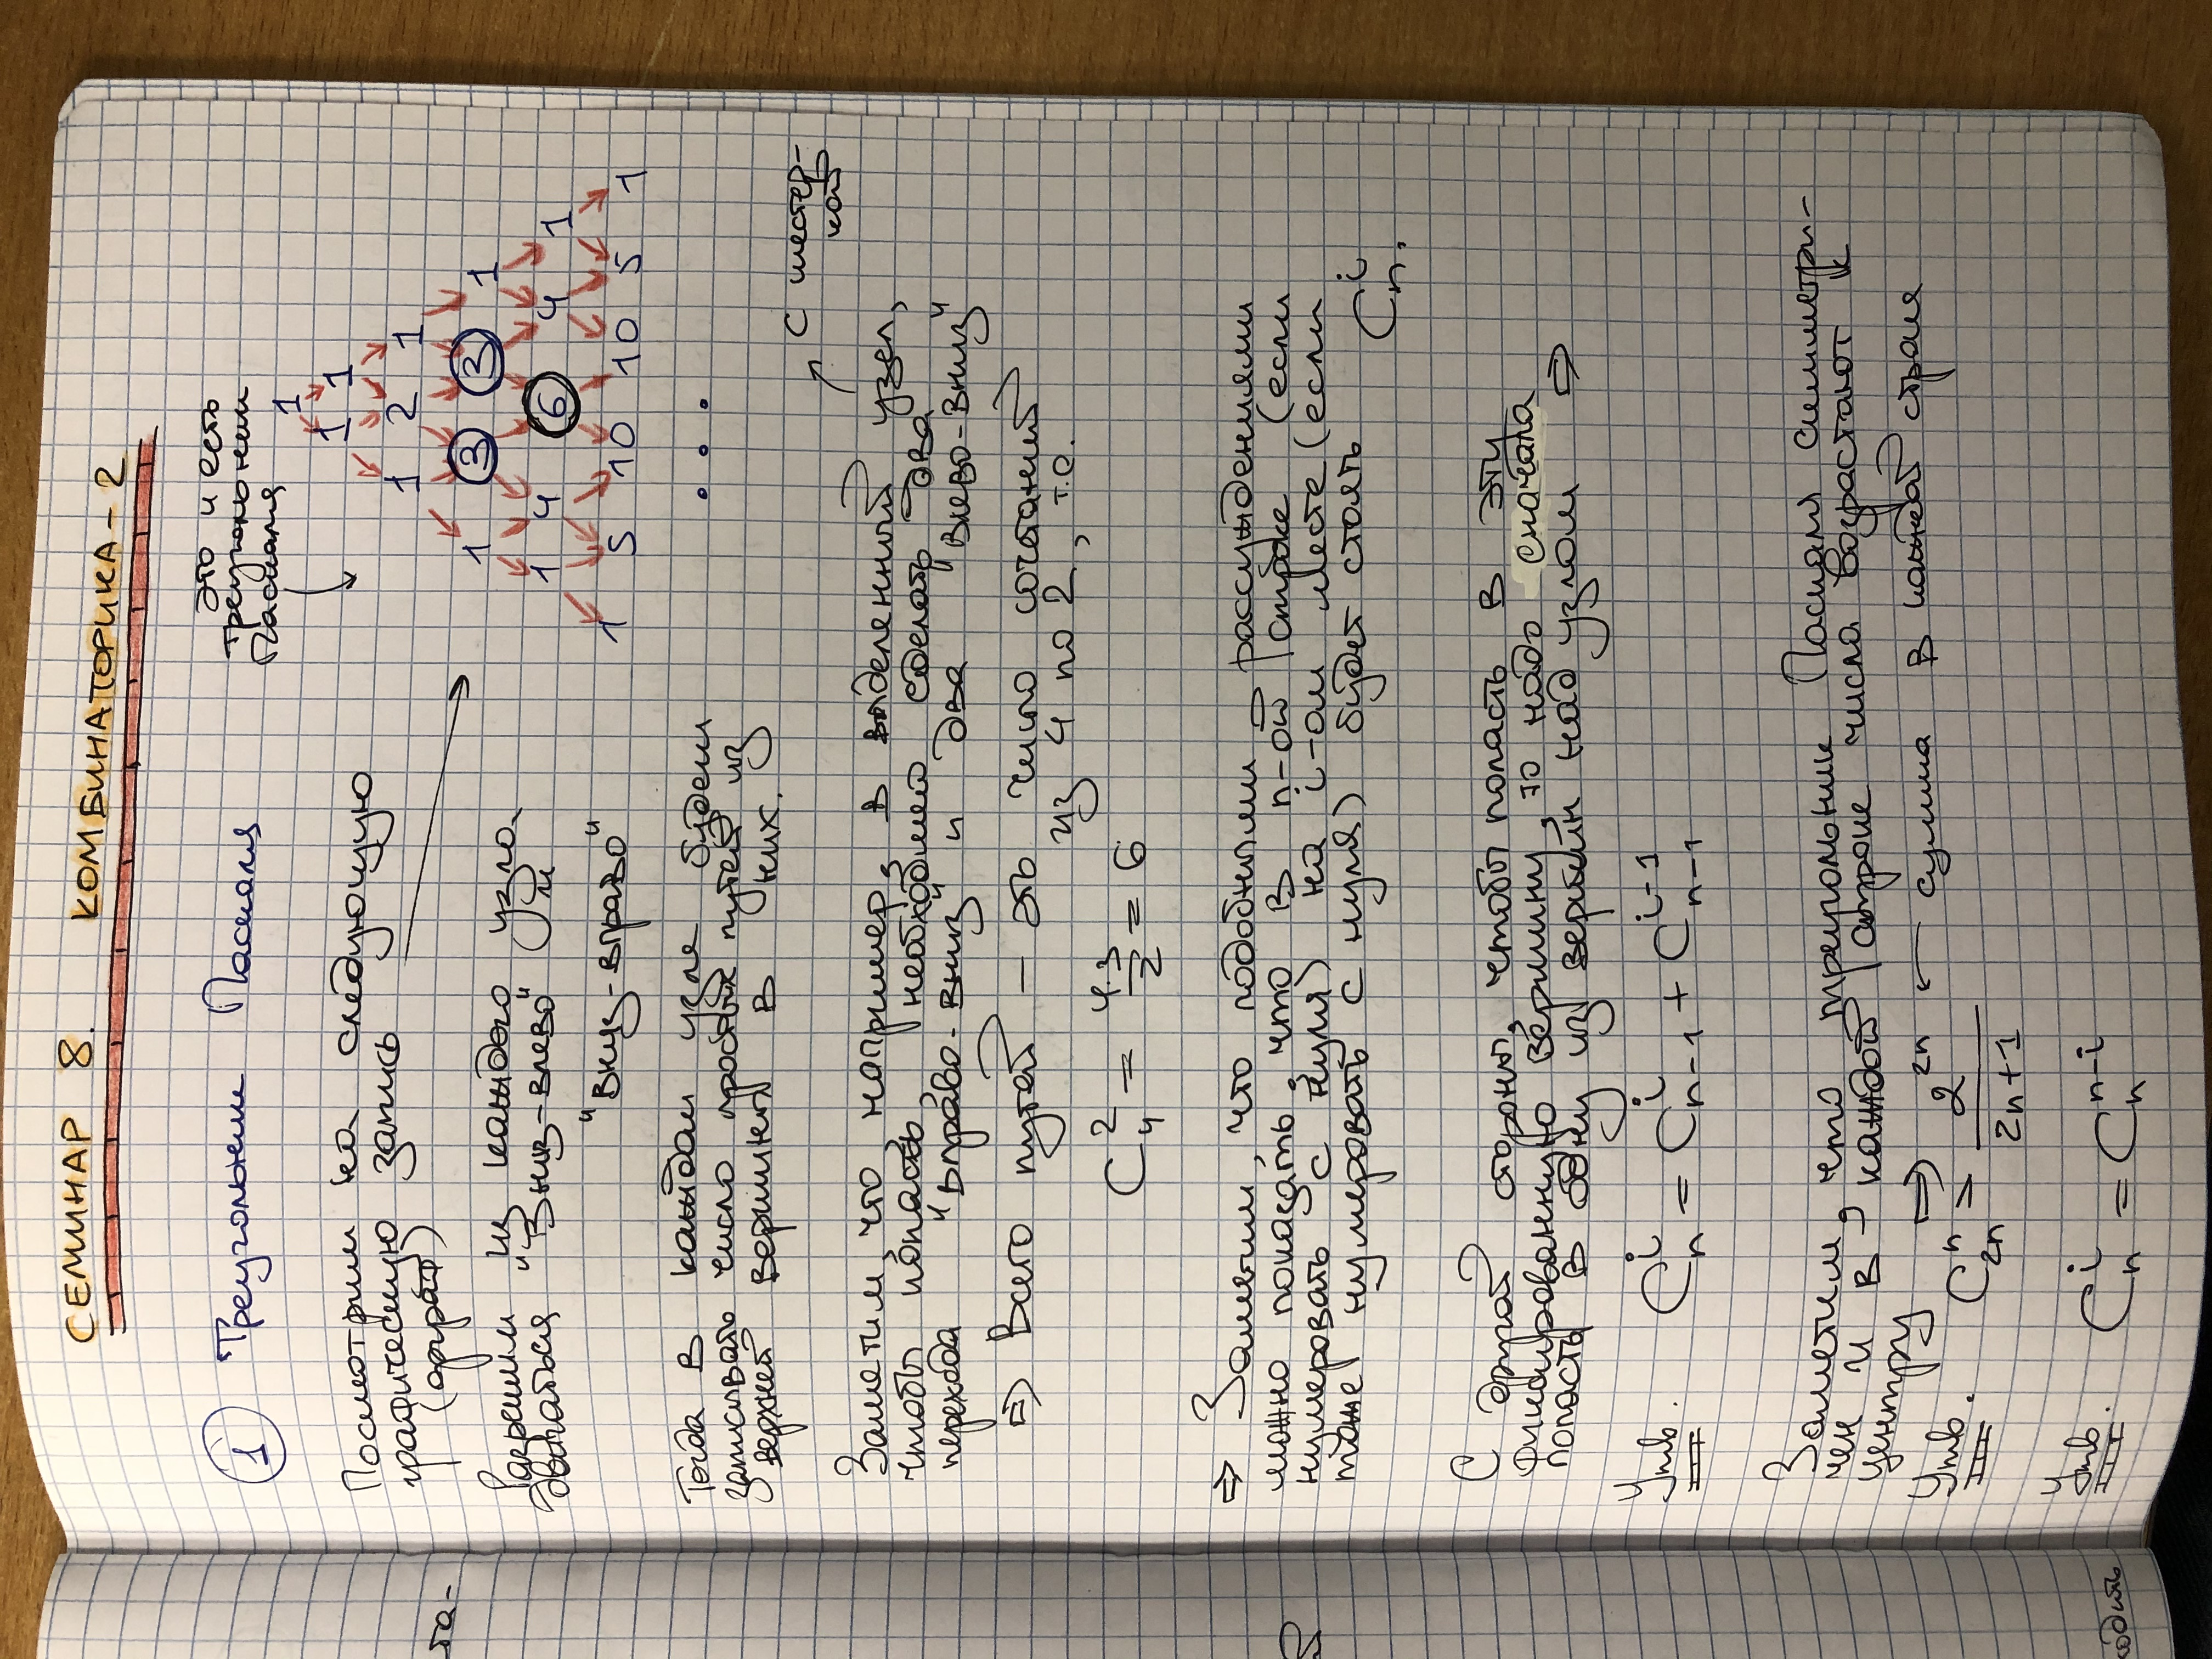 СЕМИНАР 8. КОМБИНАТОРИКА-2
1 Треугольник Паскаля
это и есть
треугольник
Паскаля
1
1 1
1 2 1
1 3 3 1
1 4 6 4 1
1 5 10 10 5 1
...
Посмотрим на следующую
графическую запись
(орграф)
Разрешим из каждого узла
двигаться "Вниз-влево" и
"вниз-вправо"
Тогда в каждом узле будем
записывать число простых путей из
верхней вершины в них.
с шестер-
кой
Заметим, что, например, в выделенный узел,
чтобы попасть, необходимо сделать два
перехода "вправо-вниз" и два "влево-вниз"
⇒ Всего путей – это число сочетаний
из 4 по 2, т.е.
C₄² = 4·3/2 = 6
⇒ Заметим, что подобными рассуждениями
можно показать, что в n-ой строке (если
нумеровать с нуля) на i-ом месте (если
тоже нумеровать с нуля) будет стоять Cₙⁱ.
С другой стороны, чтобы попасть в эту
фиксированную вершину, то надо сначала
попасть в одну из вершин над узлом ⇒
Утв. C_n^i = C_{n-1}^i + C_{n-1}^{i-1}
Заметим, что треугольник Паскаля симметри-
чен и в каждой строке числа возрастают к
центру ⇒
Утв. C_{2n}^n = 2^{2n}/(2n+1) ← сумма в каждой строке
Утв. C_n^i = C_n^{n-i}
та-
й
ходить